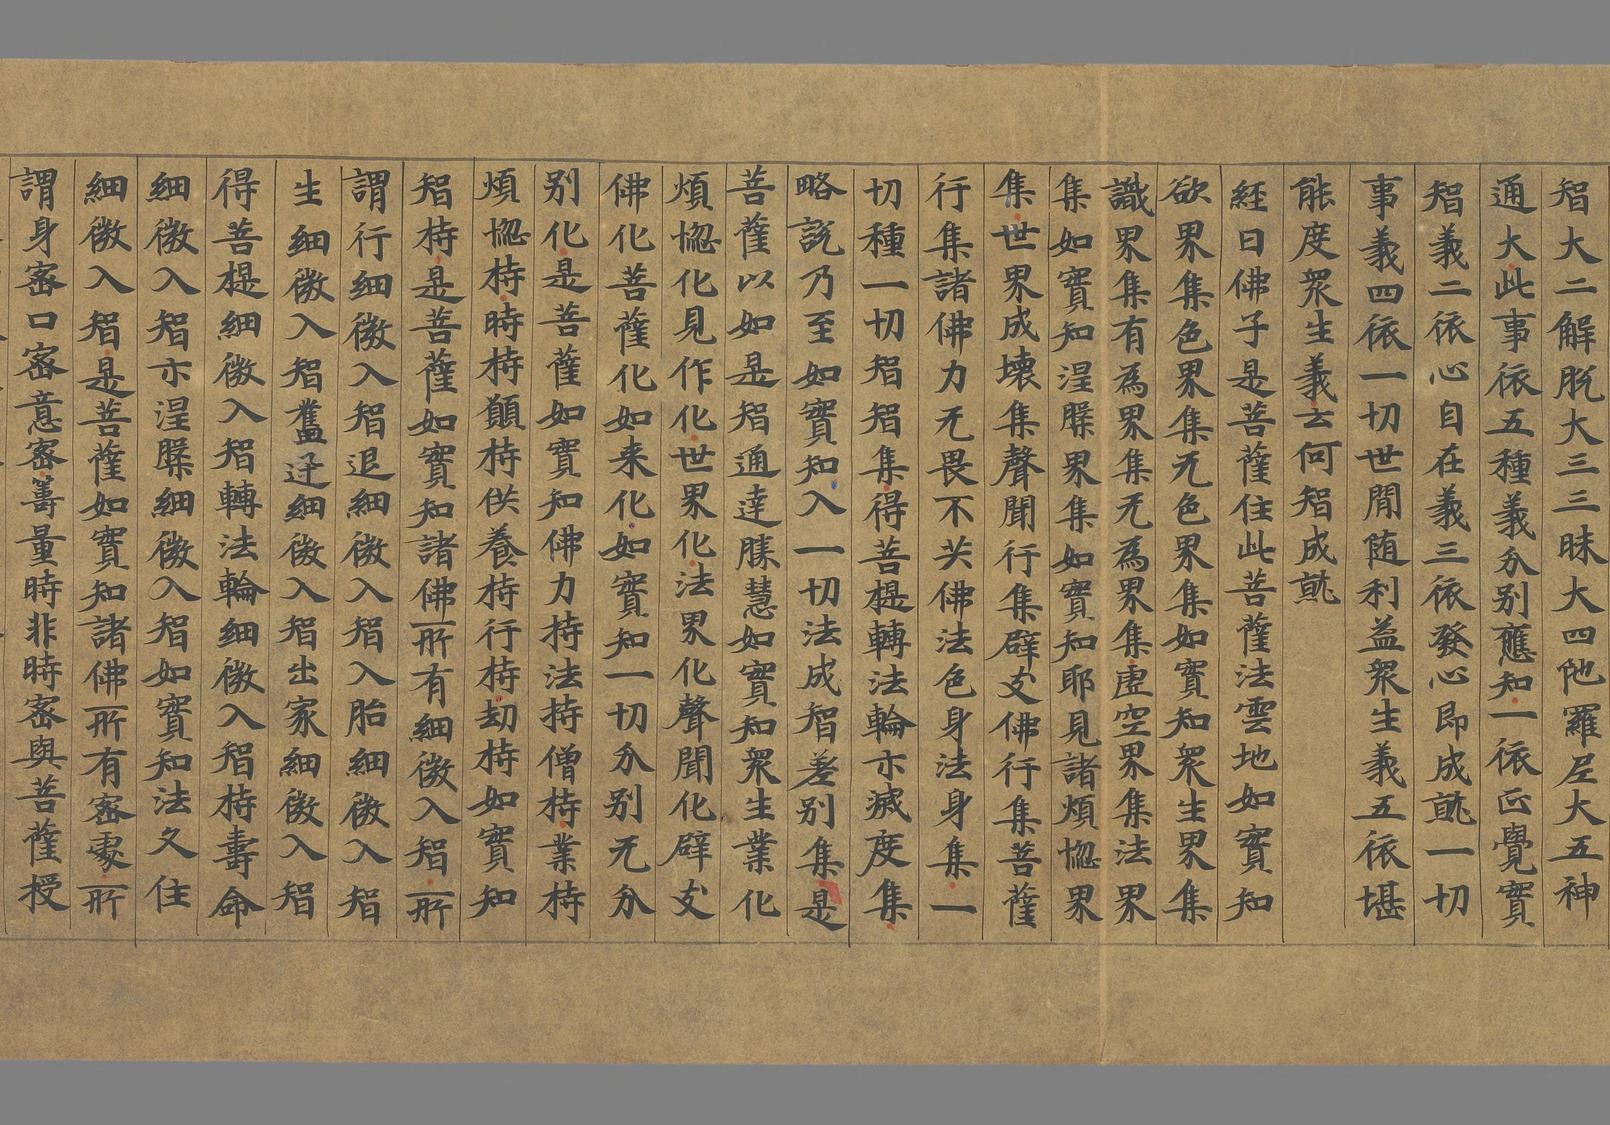 智大二解脱大三三昧大四陁羅尼大五神
通大此事依五種義義分別應知一依正覺實
智義二依心自在義三依發心即成就一切
事義四依一切世間随利益衆生義五依堪
能度衆生義云何智成就
經曰佛子是菩薩住此菩薩法雲地如實知
欲界集色界集无色界集如實知衆生界集
識界集有為界集无為界集虚空界集法界
集如實知涅槃界集如實知耶見諸煩惱界
集世界成壊集聲聞行集辟支佛行集菩薩
行集諸佛力无畏不共佛法色身法身集一
切種一切智智集得菩提轉法輪示滅度集
略説乃至如實知入一切法成智差別集是
菩薩以如是智通達勝慧如實知衆生業化
煩惱化見作化世界化法界化聲聞化辟支
佛化菩薩化如来化如實知一切分別无分
別化是菩薩如實知佛力持法持僧持業持
煩惱持時持願持供養持行持劫持如實知
智持是菩薩如實知諸佛所有細微入智所
謂行細微入智退細微入智入胎細微入智
生細微入智奮迅細微入智出家細微入智
得菩提細微入智轉法輪細微入智持壽命
細微入智示涅槃細微入智如實知法久住
細微入智是菩薩如實知諸佛所有密處所
謂身密口密意密籌量時非時密與菩薩授